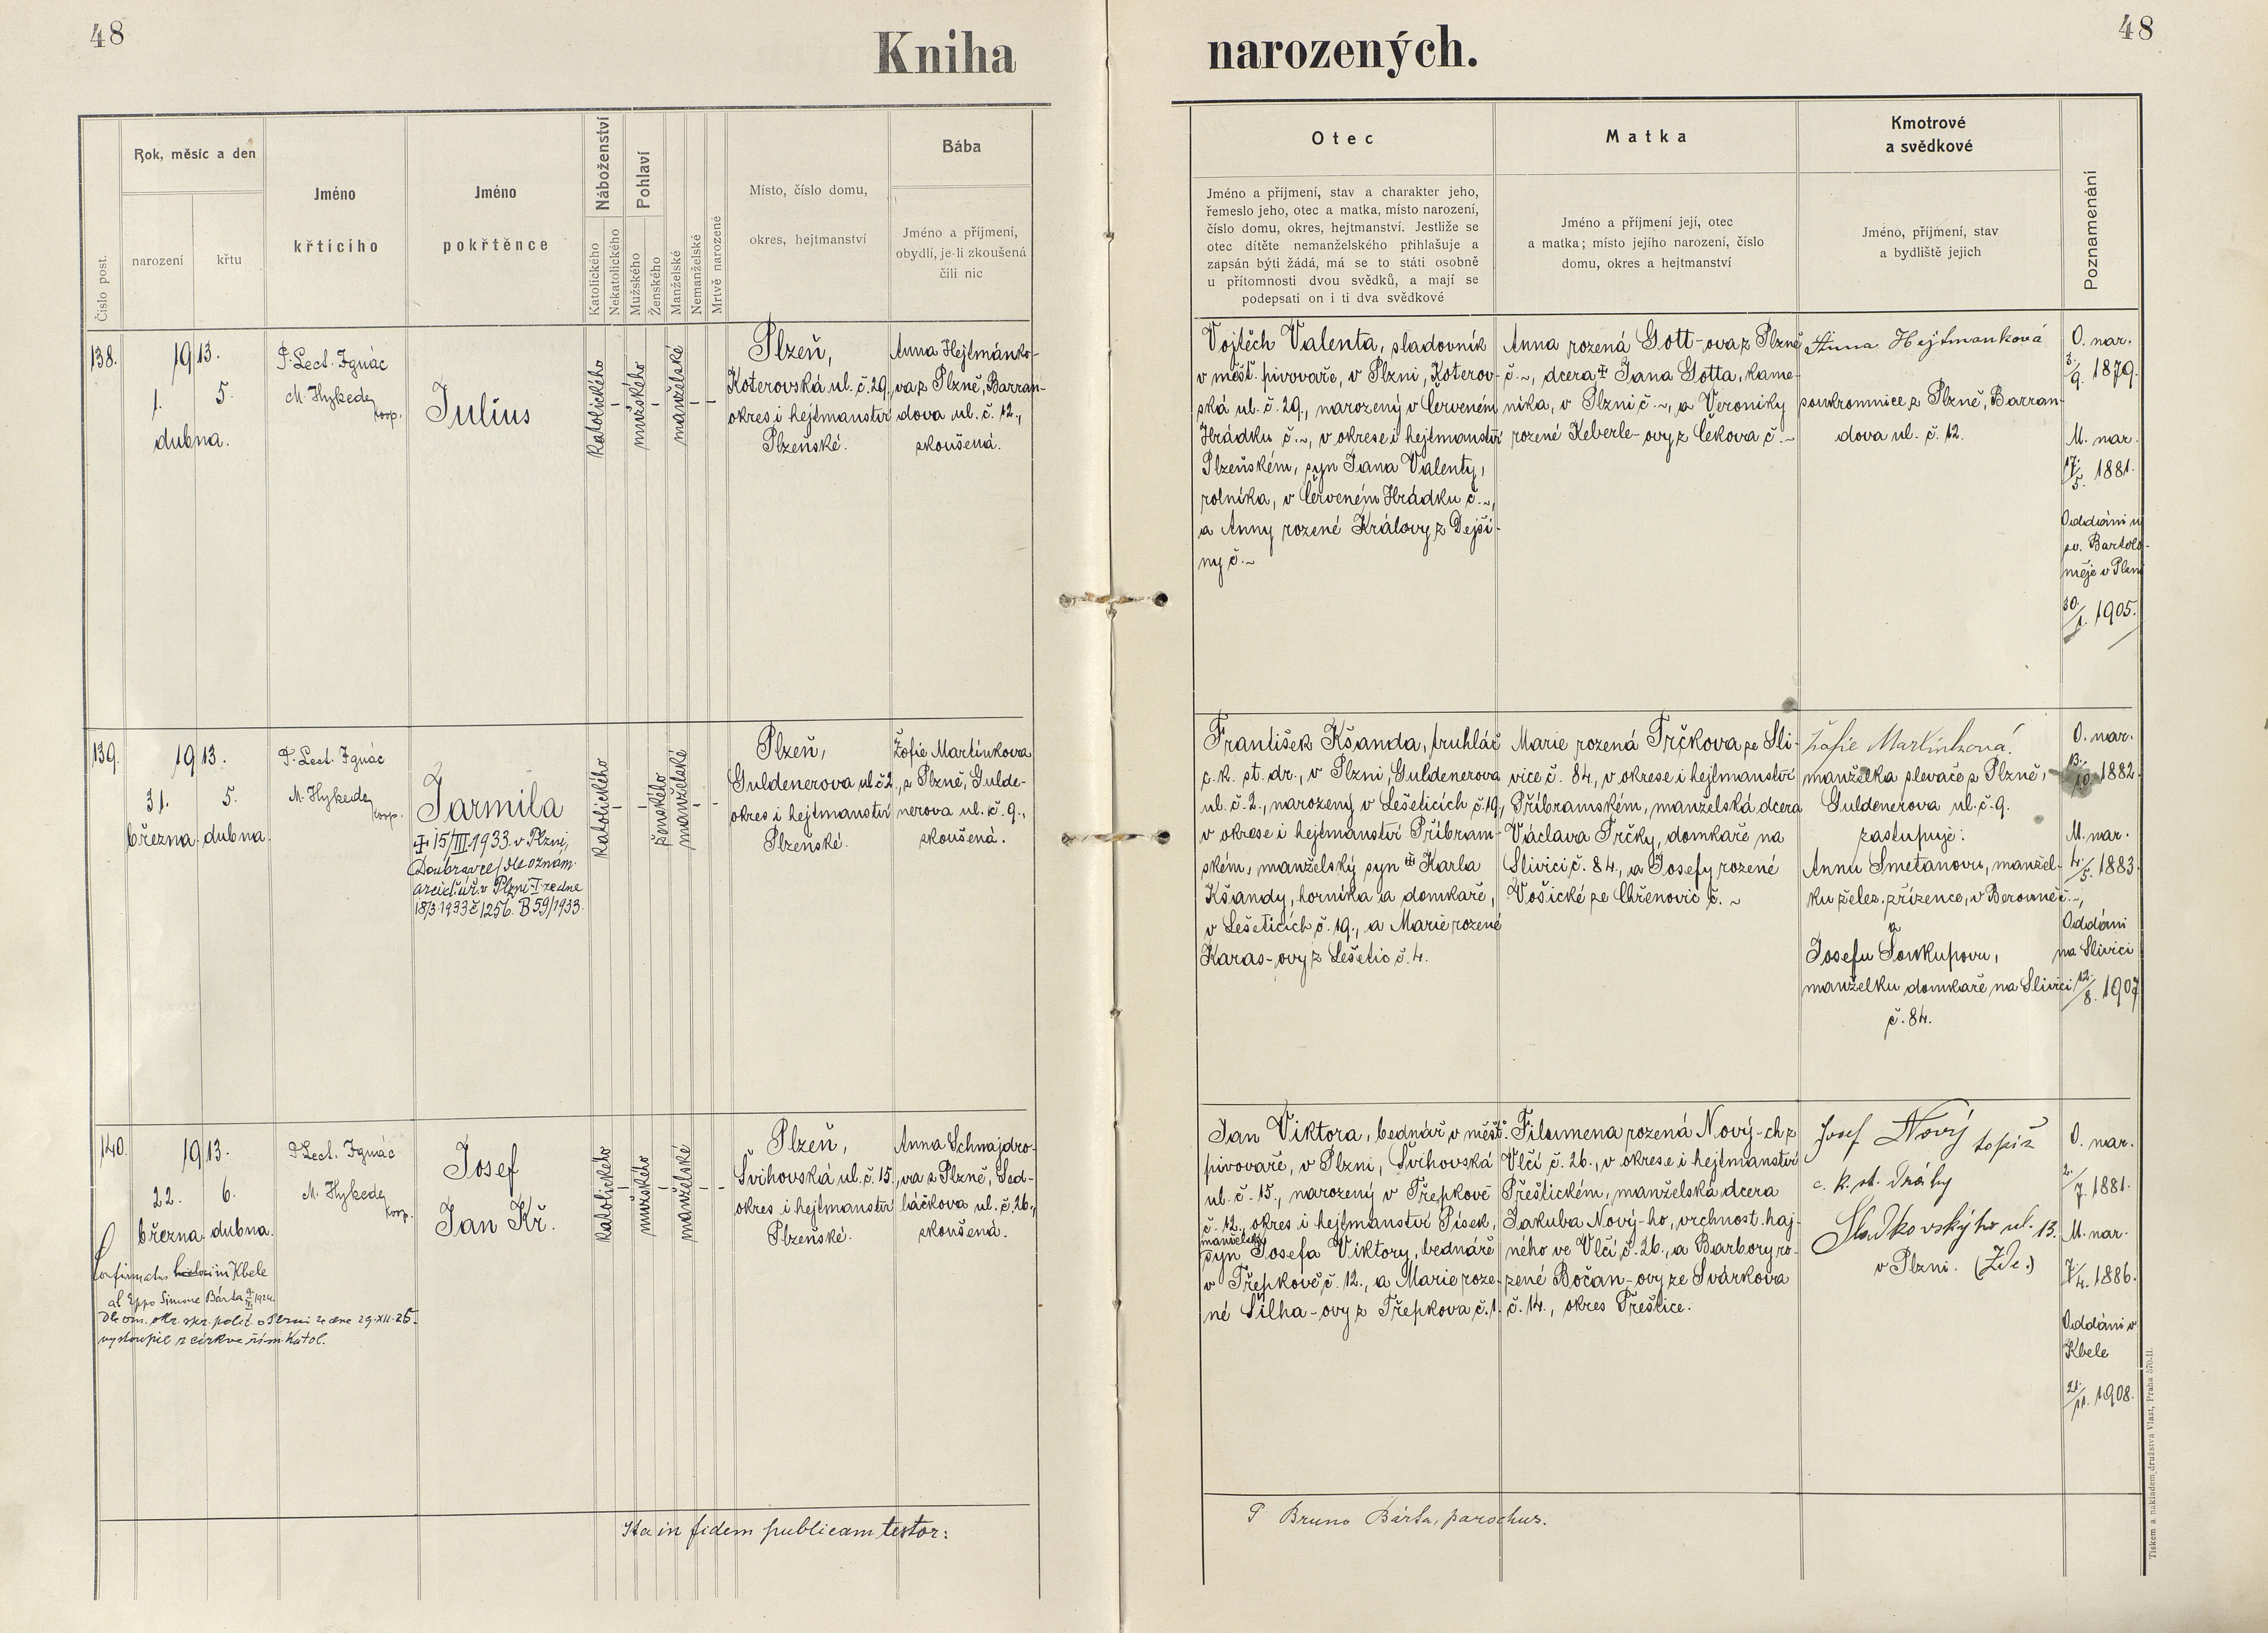 48
Kniha
narozených.
48
Číslo post.
Rok, měsíc a den
narození
křtu
Jméno
křtícího
Jméno
pokřtěnce
Náboženství
Katolického
Nekatolického
Pohlaví
Mužského
Ženského
Manželské
Nemanželské
Mrtvě narozené
Místo, číslo domu,
okres, hejtmanství
Bába
Jméno a příjmení,
obydlí, je-li zkoušená
čili nic
Otec
Jméno a příjmení, stav a charakter jeho,
řemeslo jeho, otec a matka, místo narození,
číslo domu, okres, hejtmanství. Jestliže se
otec dítěte nemanželského přihlašuje a
zapsán býti žádá, má se to státi osobně
u přítomnosti dvou svědků, a mají se
podepsati on i ti dva svědkové
Matka
Jméno a příjmení její, otec
a matka; místo jejího narození, číslo
domu, okres a hejtmanství
Kmotrové
a svědkové
Jméno, příjmení, stav
a bydliště jejich
Poznamenání
138.
1913.
1.
5.
dubna.
P. Lect. Ignác
M. Hykede,
koop.
Julius
katolického
mužského
manželské
Plzeň,
Koterovská ul. č. 29,
okres i hejtmanství
Plzeňské.
Anna Hejtmánko-
va z Plzně, Barran-
dova ul. č. 12.,
zkoušená.
Vojtěch Valenta, sladovník
v měšť. pivovaře, v Plzni, Koterov-
ská ul. č. 29., narozený v Červeném
Hrádku č. ~, v okrese i hejtmanství
Plzeňském, syn Jana Valenty,
rolníka, v Červeném Hrádku č. ~,
a Anny rozené Královy z Dejši-
ny č. ~
Anna rozená Gott-ova z Plzně
č. ~, dcera ‡ Jana Gotta, kame-
níka, v Plzni č. ~, a Veroniky
rozené Keberle-ovy z Čekova č. ~
Anna Hejtmanková
soukromnice z Plzně, Barran-
dova ul. č. 12.
O. nar.
3./9. 1879.
M. nar.
17./5. 1881.
Oddáni u
sv. Bartolo-
měje v Plzni
30./1. 1905.
139.
1913.
31.
5.
března. dubna.
P. Lect. Ignác
M. Hykede,
koop.
Jarmila
‡ 15/III 1933 v Plzni,
Doubravce/dle oznám.
arcid. úř. v Plzni-I ze dne
18/3 1933 č 1256. B 59/1933.
katolického
ženského
manželské
Plzeň,
Guldenerova ul. č. 2.,
okres i hejtmanství
Plzeňské.
Žofie Martinkova
z Plzně, Gulde-
nerova ul. č. 9.,
zkoušená.
František Kšanda, truhlář
c. k. st. dr., v Plzni, Guldenerova
ul. č. 2., narozený v Lešeticích č. 19,
v okrese i hejtmanství Příbram-
ském, manželský syn ‡ Karla
Kšandy, horníka a domkaře,
v Lešeticích č. 19., a Marie rozené
Karas-ovy z Lešetic č. 4.
Marie rozená Trčkova ze Sli-
vice č. 84., v okrese i hejtmanství
Příbramském, manželská dcera
Václava Trčky, domkaře na
Slivici č. 84., a Josefy rozené
Vošické ze Chřenovic č. ~
Žofie Martinková
manželka slevače z Plzně,
Guldenerova ul. č. 9.
zastupuje:
Annu Smetanovu, manžel-
ku želez. zřízence, v Berouně č. ~,
a
Josefu Soukupovu,
manželku domkaře na Slivici
č. 84.
O. nar.
13./10. 1882
M. nar.
4./5. 1883.
Oddáni
na Slivici
12./8. 1907
140.
1913.
22.
6.
března. dubna.
P. Lect. Ignác
M. Hykede,
koop.
Josef
Jan Kř.
Confirmatus in Kbele
ab Eppo Simone Bárta 1924.
Dle ozn. okr. spr. polit v Plzni ze dne 29.XII.25.
vystoupil z církve řím. katol.
katolického
mužského
manželské
Plzeň,
Švihovská ul. č. 15.,
okres i hejtmanství
Plzeňské.
Anna Schnajdro-
va z Plzně, Sed-
láčkova ul. č. 26.,
zkoušená.
Jan Viktora, bednář v měšť.
pivovaře, v Plzni, Švihovská
ul. č. 15., narozený v Třepkově
č. 12., okres i hejtmanství Písek,
manželský
syn Josefa Viktory, bednáře
v Třepkově č. 12., a Marie roze-
né Šilha-ovy z Třepkova č. 1.
Filomena rozená Nový-ch z
Vlčí č. 26., v okrese i hejtmanství
Přeštickém, manželská dcera
Jakuba Nový-ho, vrchnost. haj-
ného ve Vlčí č. 26., a Barbory ro-
zené Bočan-ovy ze Svárkova
č. 14., okres Přeštice.
Josef Nový topič
c. k. st. dráhy
Sladkovského ul. 13.
v Plzni.
O. nar.
2./7. 1881.
M. nar.
7./4. 1886.
Oddáni v
Kbele
21./11. 1908.
Ita in fidem publicam testor:
P. Bruno Bárta, parochus.
Tiskem a nákladem družstva Vlast, Praha 570-II.